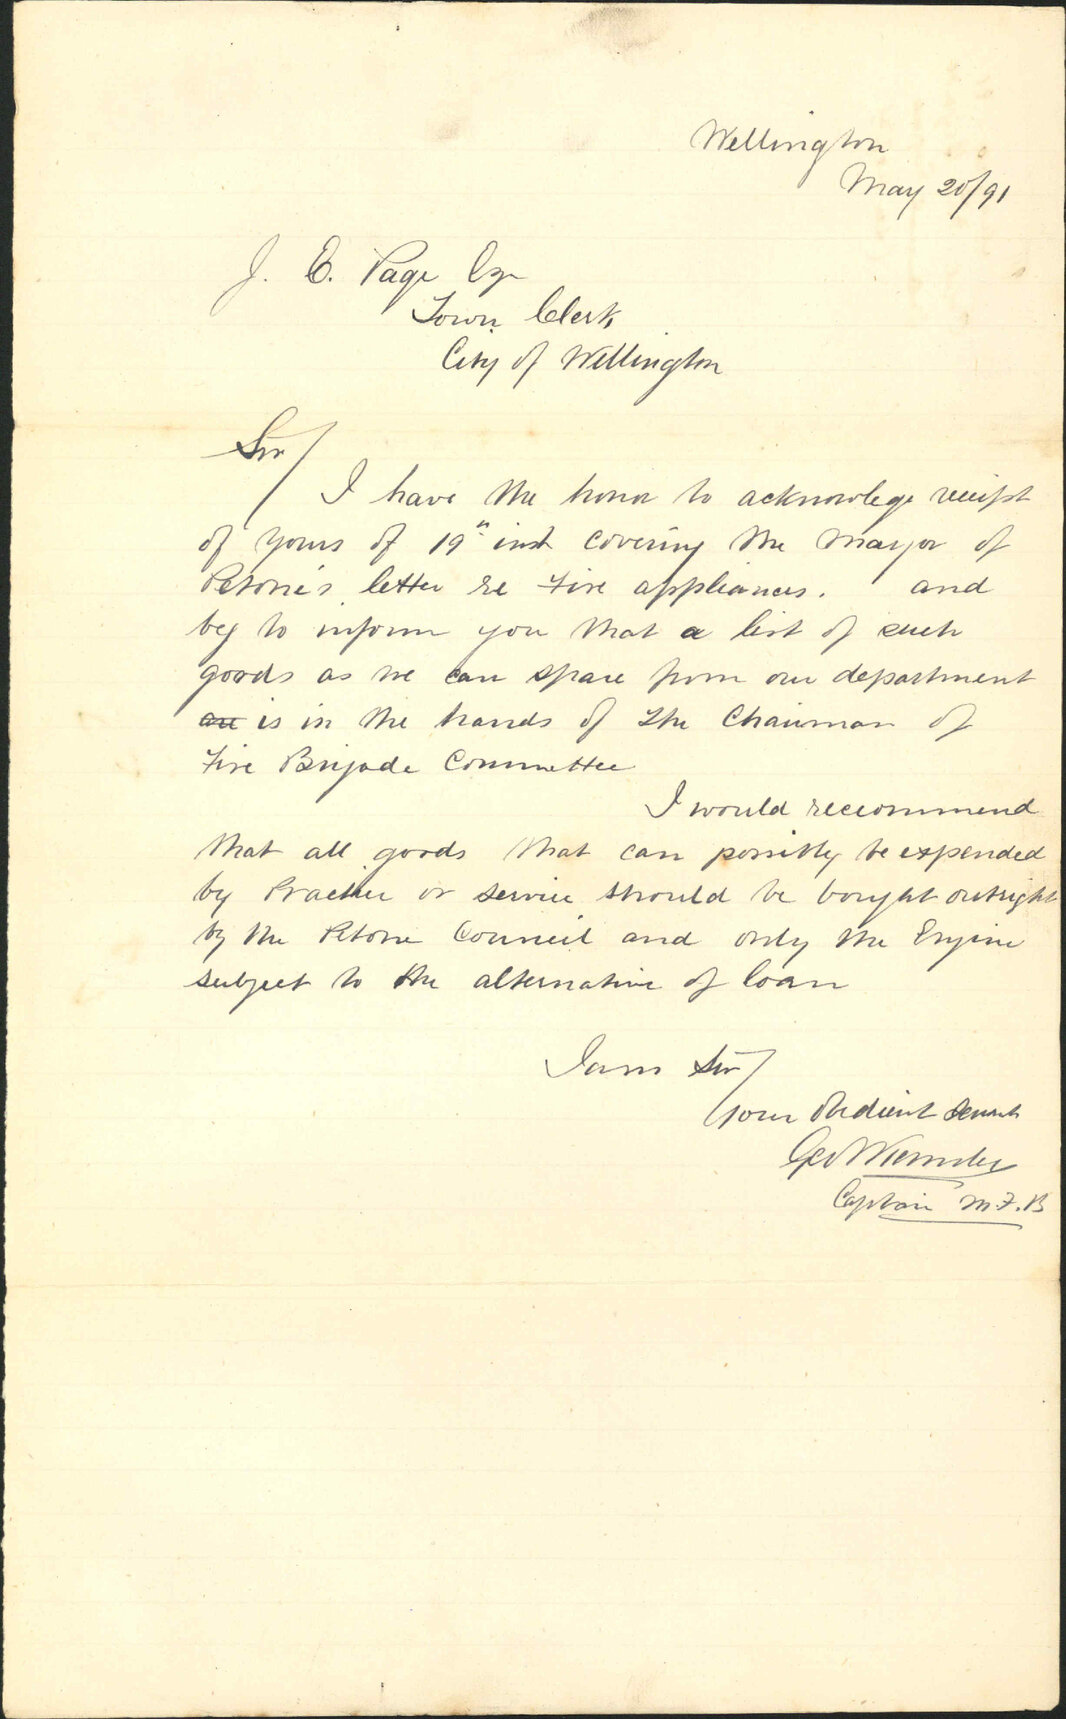 Wellington
May 20/91
J. E. Page Esqr
Town Clerk
City of Wellington
Sir/
I have the honor to acknowlege receipt
of yours of 19th inst covering the Mayor of
Petone's letter re Fire appliances. and
beg to inform you that a list of such
goods as we can spare from our department
are is in the hands of the Chairman of
Fire Brigade Committee
I would reccommend
that all goods that can possibly be expended
by Practice or service should be bought outright
by the Petone Council and only the Engine
subject to the alternative of loan
I am Sir/
Your Obedient Servnt
Geo
Captain M.F.B